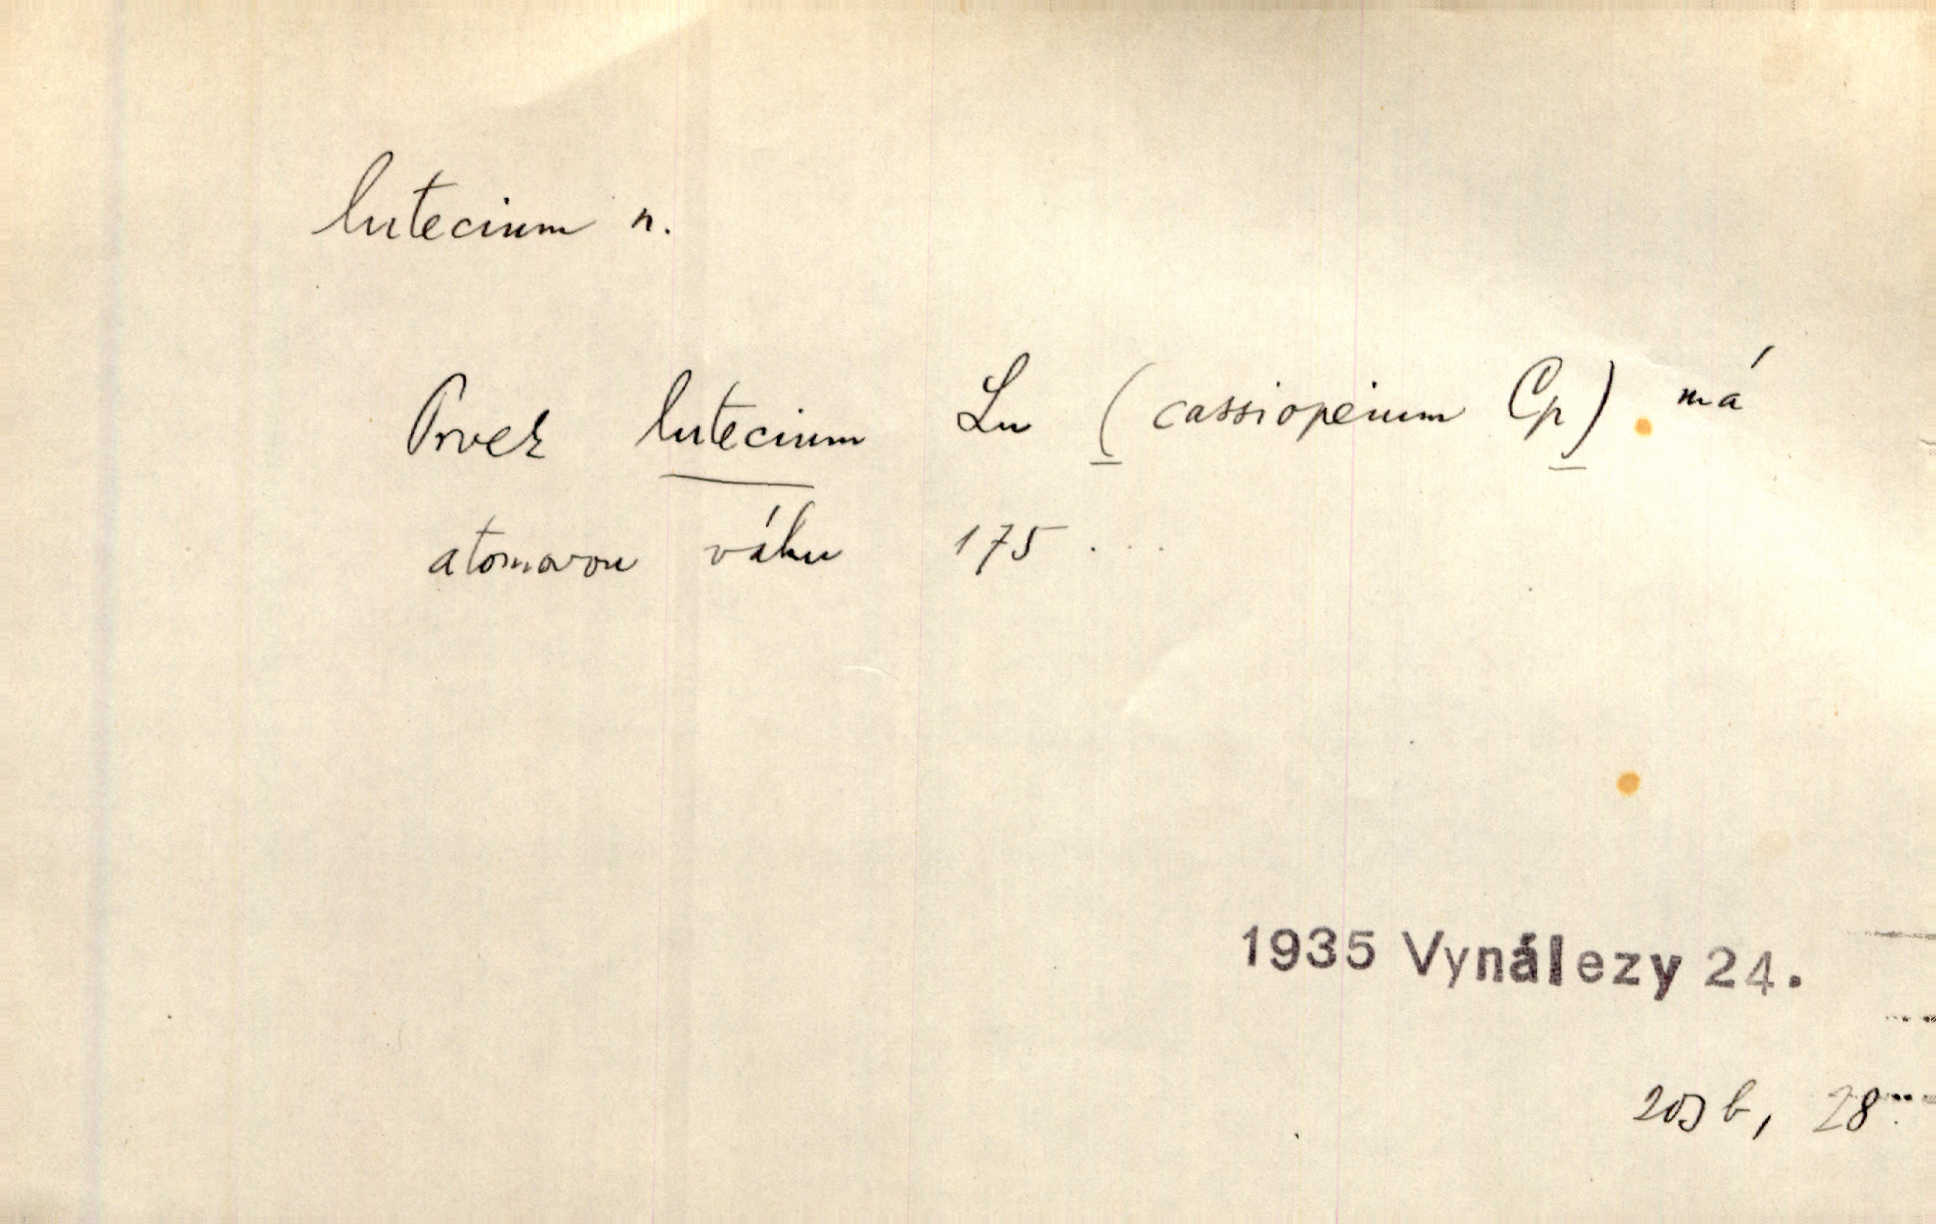 lutecium n.
Prvek lutecium Lu (cassiopeium Cp) má
atomovou váhu 175 ...
1935 Vynálezy 24.
b, 28